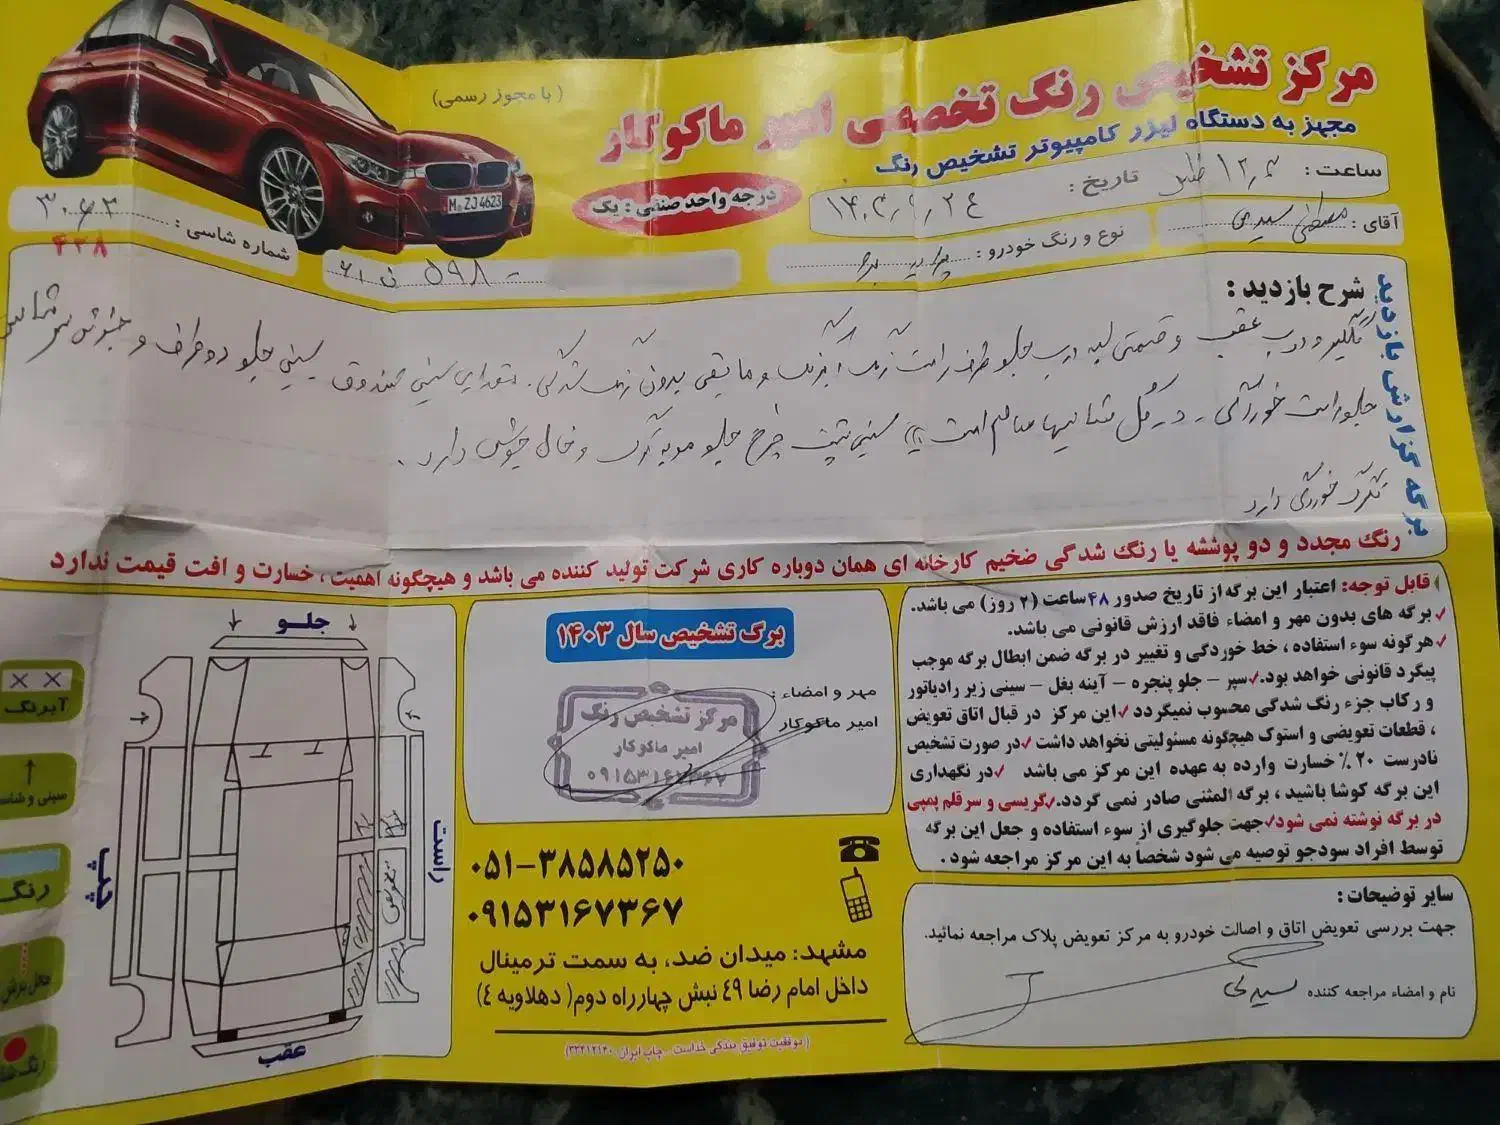 مرکز تشخیص رنگ تخصصی امیر ماکوکار
(با مجوز رسمی)
مجهز به دستگاه لیزر کامپیوتر تشخیص رنگ
درجه واحد صنفی : یک
ساعت :
تاریخ :
آقای : مصطفی سیدی
نوع و رنگ خودرو :
شماره شاسی :
۴۳۸
M ZJ 4623
برگه گزارش بازدید
شرح بازدید :
گلگیر و درب عقب و قسمتی لبه درب جلو طرف راست رنگ آبرنگ و مابقی بدون رنگ شدگی. سینی صندوق سینی جلو دو طرف و
جلو راست خوردگی - در کل شاسیها سالم است سینی پشت چرخ جلو مویه ترک و خال جوش دارد.
تگرگ خوردگی دارد
رنگ مجدد و دو پوششه یا رنگ شدگی ضخیم کارخانه ای همان دوباره کاری شرکت تولید کننده می باشد و هیچگونه اهمیت ، خسارت و افت قیمت ندارد
قابل توجه: اعتبار این برگه از تاریخ صدور ۴۸ساعت (۲ روز) می باشد.
✓برگه های بدون مهر و امضاء فاقد ارزش قانونی می باشد.
✓هرگونه سوء استفاده ، خط خوردگی و تغییر در برگه ضمن ابطال برگه موجب
پیگرد قانونی خواهد بود.✓سپر – جلو پنجره – آینه بغل – سینی زیر رادیاتور
و رکاب جزء رنگ شدگی محسوب نمیگردد ✓این مرکز در قبال اتاق تعویض
، قطعات تعویضی و استوک هیچگونه مسئولیتی نخواهد داشت ✓در صورت تشخیص
نادرست ۲۰ % خسارت وارده به عهده این مرکز می باشد ✓در نگهداری
این برگه کوشا باشید ، برگه المثنی صادر نمی گردد.✓گریسی و سرقلم پمپی
در برگه نوشته نمی شود✓جهت جلوگیری از سوء استفاده و جعل این برگه
توسط افراد سودجو توصیه می شود شخصاً به این مرکز مراجعه شود .
برگ تشخیص سال ۱۴۰۳
مهر و امضاء :
امیر ماکوکار
مرکز تشخیص رنگ
امیر ماکوکار
۰۹۱۵۳۱۶۷۳۶۷
جلـو
راست
چپ
عقب
تعویض
× ×
آبرنگ
سینی و شاسی
رنگ
۰۵۱-۳۸۵۸۵۲۵۰
۰۹۱۵۳۱۶۷۳۶۷
مشهد: میدان ضد، به سمت ترمینال
داخل امام رضا ۴۹ نبش چهارراه دوم( دهلاویه ۴)
(موفقیت توفیق بندگی خداست - چاپ ایران: ۳۳۴۱۲۱۴۰)
سایر توضیحات :
جهت بررسی تعویض اتاق و اصالت خودرو به مرکز تعویض پلاک مراجعه نمائید.
نام و امضاء مراجعه کننده